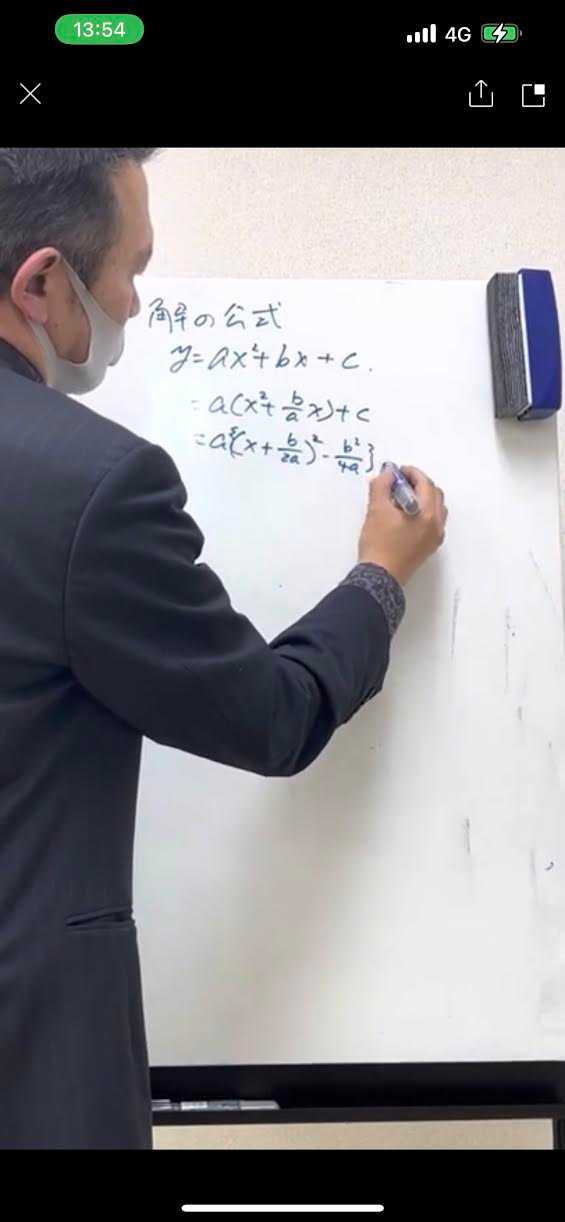 13:54
4G
解の公式
y=ax²+bx+c.
=a(x²+b/a x)+c
=a{(x+b/2a)²-b²/4a}